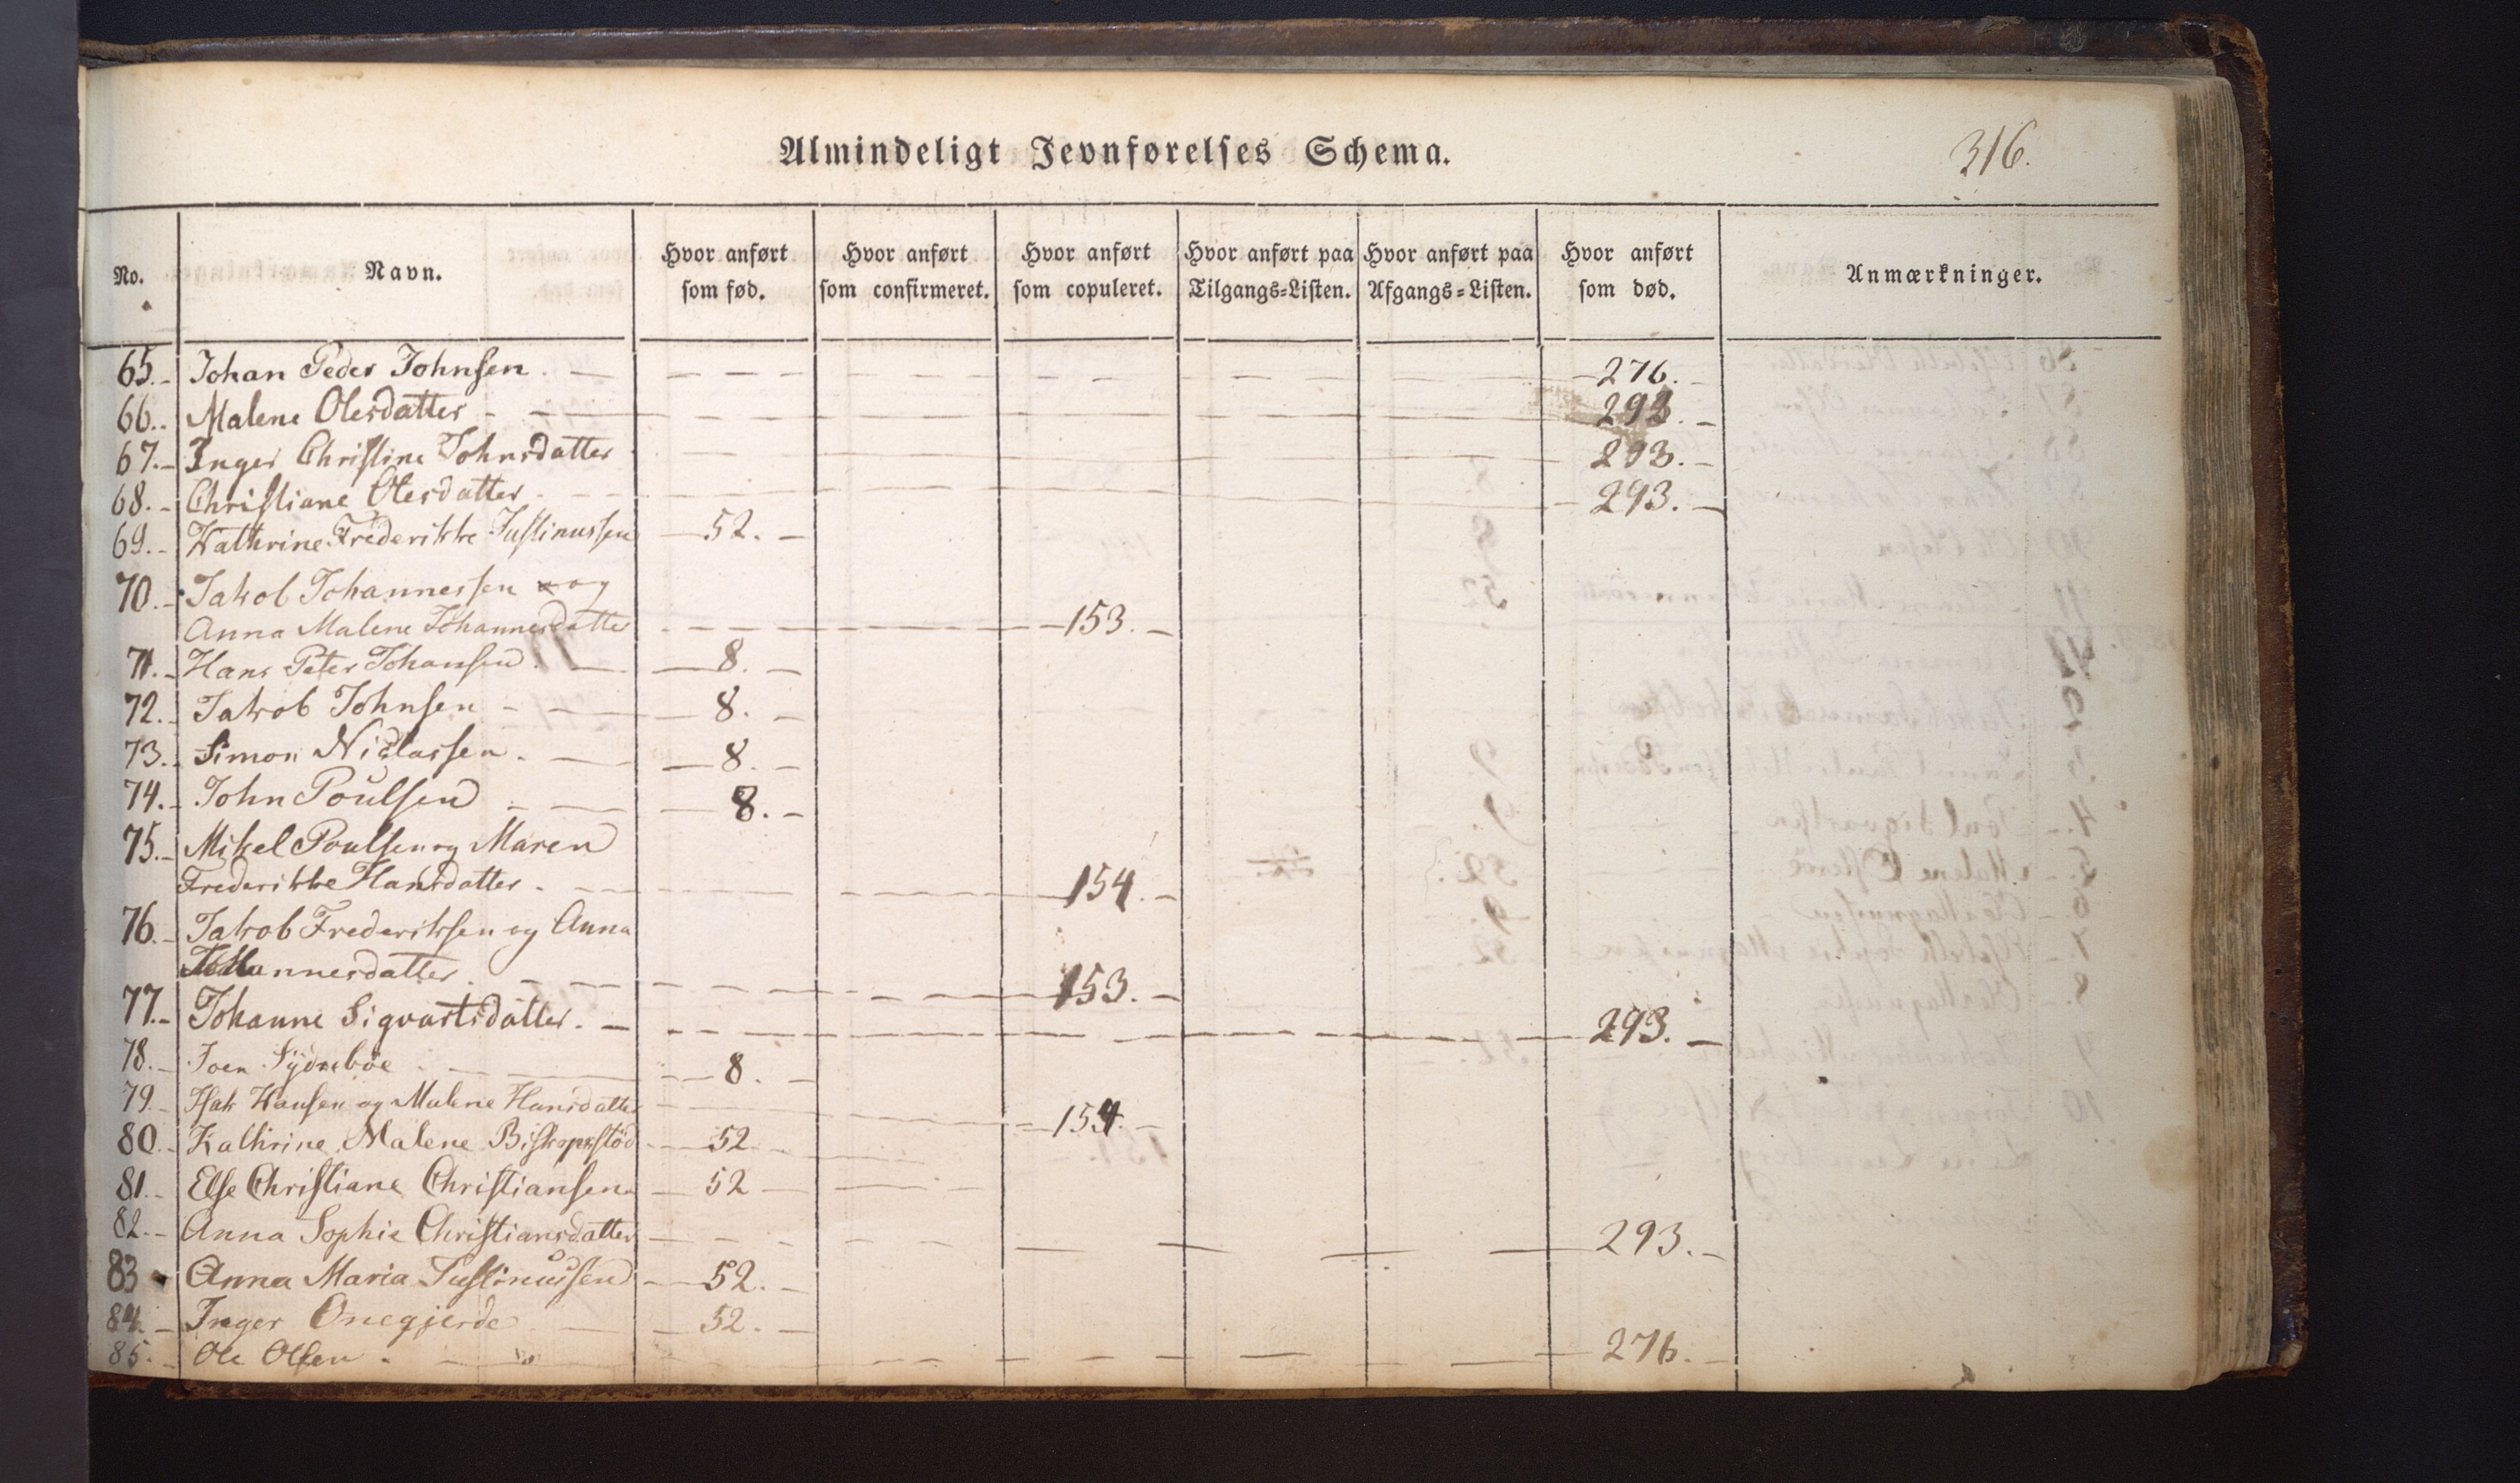 Almindeligt Jevnførelses Schema.
316.
No.
Navn.
Hvor anført som fød.
Hvor anført som confirmeret.
Hvor anført som copuleret.
Hvor anført paa Tilgangs=Listen.
Hvor anført paa Afgangs=Listen.
Hvor anført som død.
Anmærkninger.
65. Johan Peder Johnsen. 276.
66. Malene Olesdatter 293.
67. Inger Christine Johnsdatter 293.
68. Christiane Olesdatter. 293.
69. Kathrine Frederikke Justinussen 52.
70. Jakob Johannessen og
Anna Malene Johannesdatter 153.
71. Hans Peter Johansen. 8.
72. Jakob Johnsen 8.
73. Simon Niclassen. 8.
74. John Poulsen 8.
75. Mikel Poulsen og Maren
Frederikke Hansdatter. 154.
76. Jakob Frederiksen og Anna
Johannesdatter. 153.
77. Johanne Sigvartsdatter. 293.
78. Joen Sydrebøe 8.
79. Isak Hansen og Malene Hansdatter 154.
80. Kathrine Malene Biskopsstød 52
81. Else Christiane Christiansen 52
82. Anna Sophie Christiansdatter 293.
83 Anna Maria Justinussen 52.
84. Inger Onegjerde 52.
85. Ole Olsen. 276.